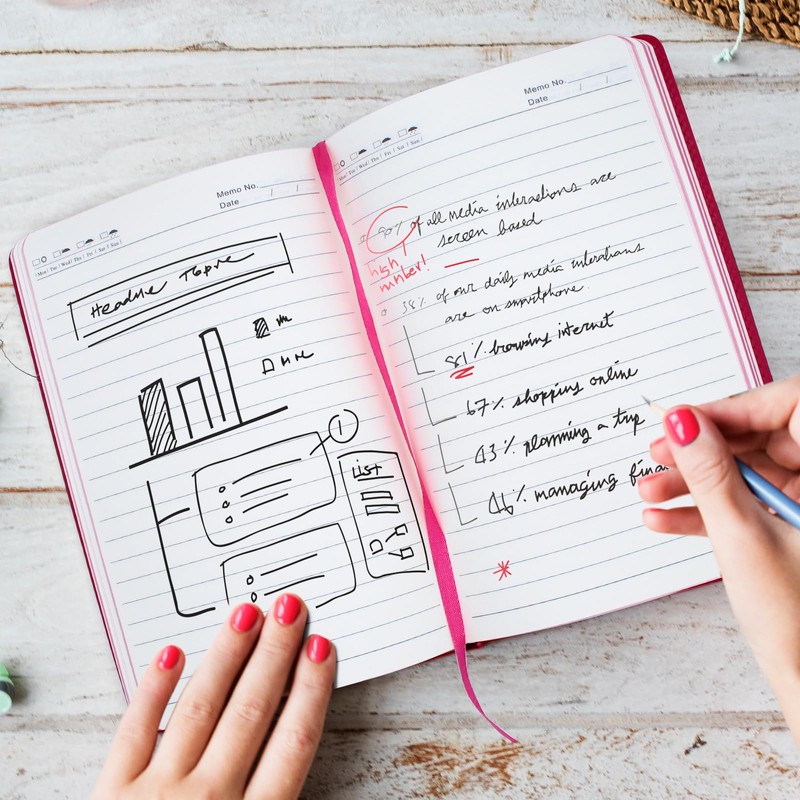 Memo No.
Date / /
Mon / Tue / Wed / Thu / Fri / Sat / Sun /
Headline Topic
1
List
Memo No.
Date / /
Mon / Tue / Wed / Thu / Fri / Sat / Sun /
90% of all media interactions are
screen based
high
number!
38% of our daily media interations
are on smartphone
81% browsing internet
67% shopping online
43% planning a trip
46% managing finan